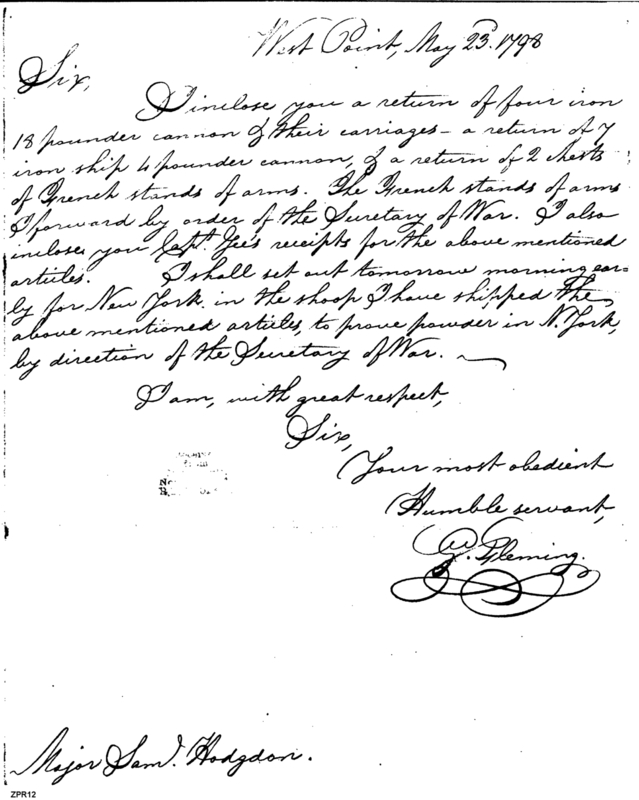 West Point, May 23d. 1798
Sir,
I inclose you a return of four iron
18 pounder cannon & their carriages - a return of 7
iron ship 4 pounder cannon, & a return of 2 chests
of French stands of arms. The French stands of arms
I forward by order of the Secretary of War. I also
inclose you Capt. Gee's receipts for the above mentioned
articles. I shall set out tomorrow morning ear-
ly for New York in the sloop I have shipped the
above mentioned articles, to prove powder in N. York,
by direction of the Secretary of War.
I am, with great respect,
Sir,
Your most obedient
Humble servant,
G. Fleming.
Major Saml. Hodgdon.
ZPR12